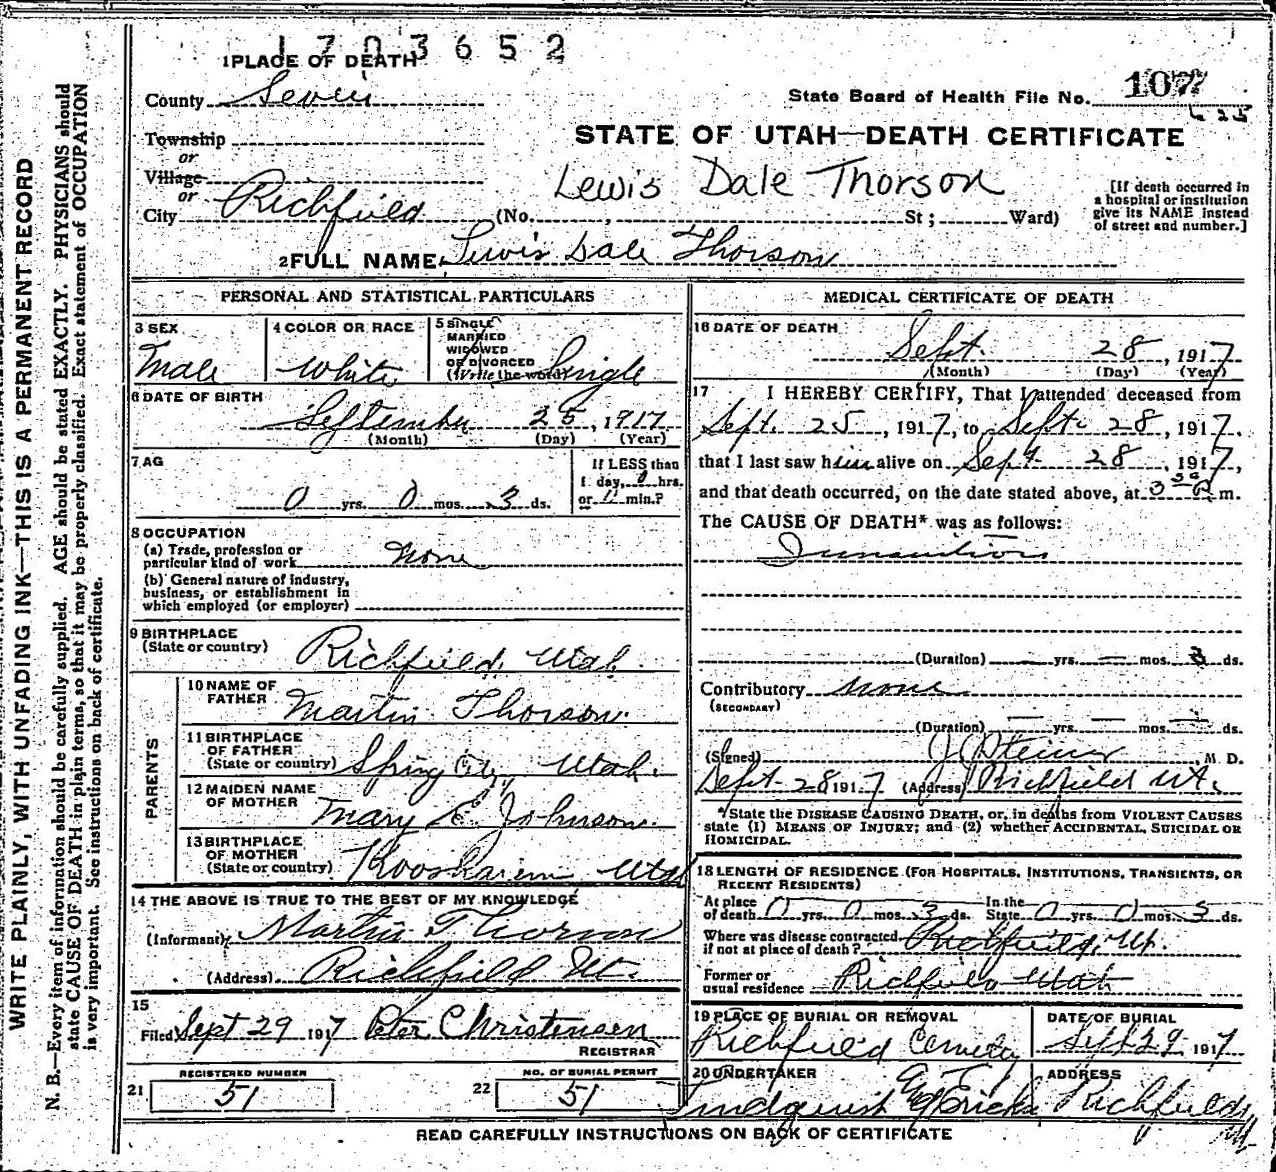 1703652
1 PLACE OF DEATH
County Sevier
State Board of Health File No. 107
Township
or
STATE OF UTAH—DEATH CERTIFICATE
Village
or
Lewis Dale Thorson
City Richfield (No. , St; Ward)
[If death occurred in
a hospital or institution
give its NAME instead
of street and number.]
2 FULL NAME Lewis Dale Thorson
PERSONAL AND STATISTICAL PARTICULARS
3 SEX
Male
4 COLOR OR RACE
White
5 SINGLE
MARRIED
WIDOWED
OR DIVORCED
(Write the word) Single
6 DATE OF BIRTH
September 25, 1917
(Month) (Day) (Year)
7 AG
If LESS than
1 day, 0 hrs.
0 yrs. 0 mos. 3 ds. or 11 min.?
8 OCCUPATION
(a) Trade, profession or
particular kind of work None
(b) General nature of industry,
business, or establishment in
which employed (or employer)
9 BIRTHPLACE
(State or country) Richfield, Utah.
PARENTS
10 NAME OF
FATHER Martin Thorson.
11 BIRTHPLACE
OF FATHER
(State or country) Spring City, Utah.
12 MAIDEN NAME
OF MOTHER Mary E. Johnson.
13 BIRTHPLACE
OF MOTHER
(State or country) Koosharem Utah
14 THE ABOVE IS TRUE TO THE BEST OF MY KNOWLEDGE
(Informant) Martin Thorson
(Address) Richfield Ut.
15
Filed Sept 29 1917 Peter Christensen
REGISTRAR
REGISTERED NUMBER
21 51
NO. OF BURIAL PERMIT
22 51
MEDICAL CERTIFICATE OF DEATH
16 DATE OF DEATH
Sept. 28, 1917
(Month) (Day) (Year)
17 I HEREBY CERTIFY, That I attended deceased from
Sept. 25, 1917, to Sept. 28, 1917.
that I last saw him alive on Sept. 28, 1917,
and that death occurred, on the date stated above, at 3 30 m.
The CAUSE OF DEATH* was as follows:
Inanition
(Duration) — yrs. — mos. 3 ds.
Contributory None
(SECONDARY)
(Duration) — yrs. — mos. — ds.
(Signed) J. Steiner M. D.
Sept 28 1917 (Address) Richfield Ut.
*State the DISEASE CAUSING DEATH, or, in deaths from VIOLENT CAUSES
state (1) MEANS OF INJURY; and (2) whether ACCIDENTAL, SUICIDAL OR
HOMICIDAL.
18 LENGTH OF RESIDENCE (FOR HOSPITALS, INSTITUTIONS, TRANSIENTS, OR
RECENT RESIDENTS)
At place In the
of death 0 yrs. 0 mos. 3 ds. State 0 yrs. 0 mos. 3 ds.
Where was disease contracted
if not at place of death? Richfield, Ut.
Former or
usual residence Richfield Utah
19 PLACE OF BURIAL OR REMOVAL
Richfield Cemetery
DATE OF BURIAL
Sept 29 1917
20 UNDERTAKER
Lindquist
ADDRESS
Richfield, Ut
READ CAREFULLY INSTRUCTIONS ON BACK OF CERTIFICATE
WRITE PLAINLY, WITH UNFADING INK—THIS IS A PERMANENT RECORD
N. B.—Every item of information should be carefully supplied. AGE should be stated EXACTLY. PHYSICIANS should
state CAUSE OF DEATH in plain terms, so that it may be properly classified. Exact statement of OCCUPATION
is very important. See instructions on back of certificate.